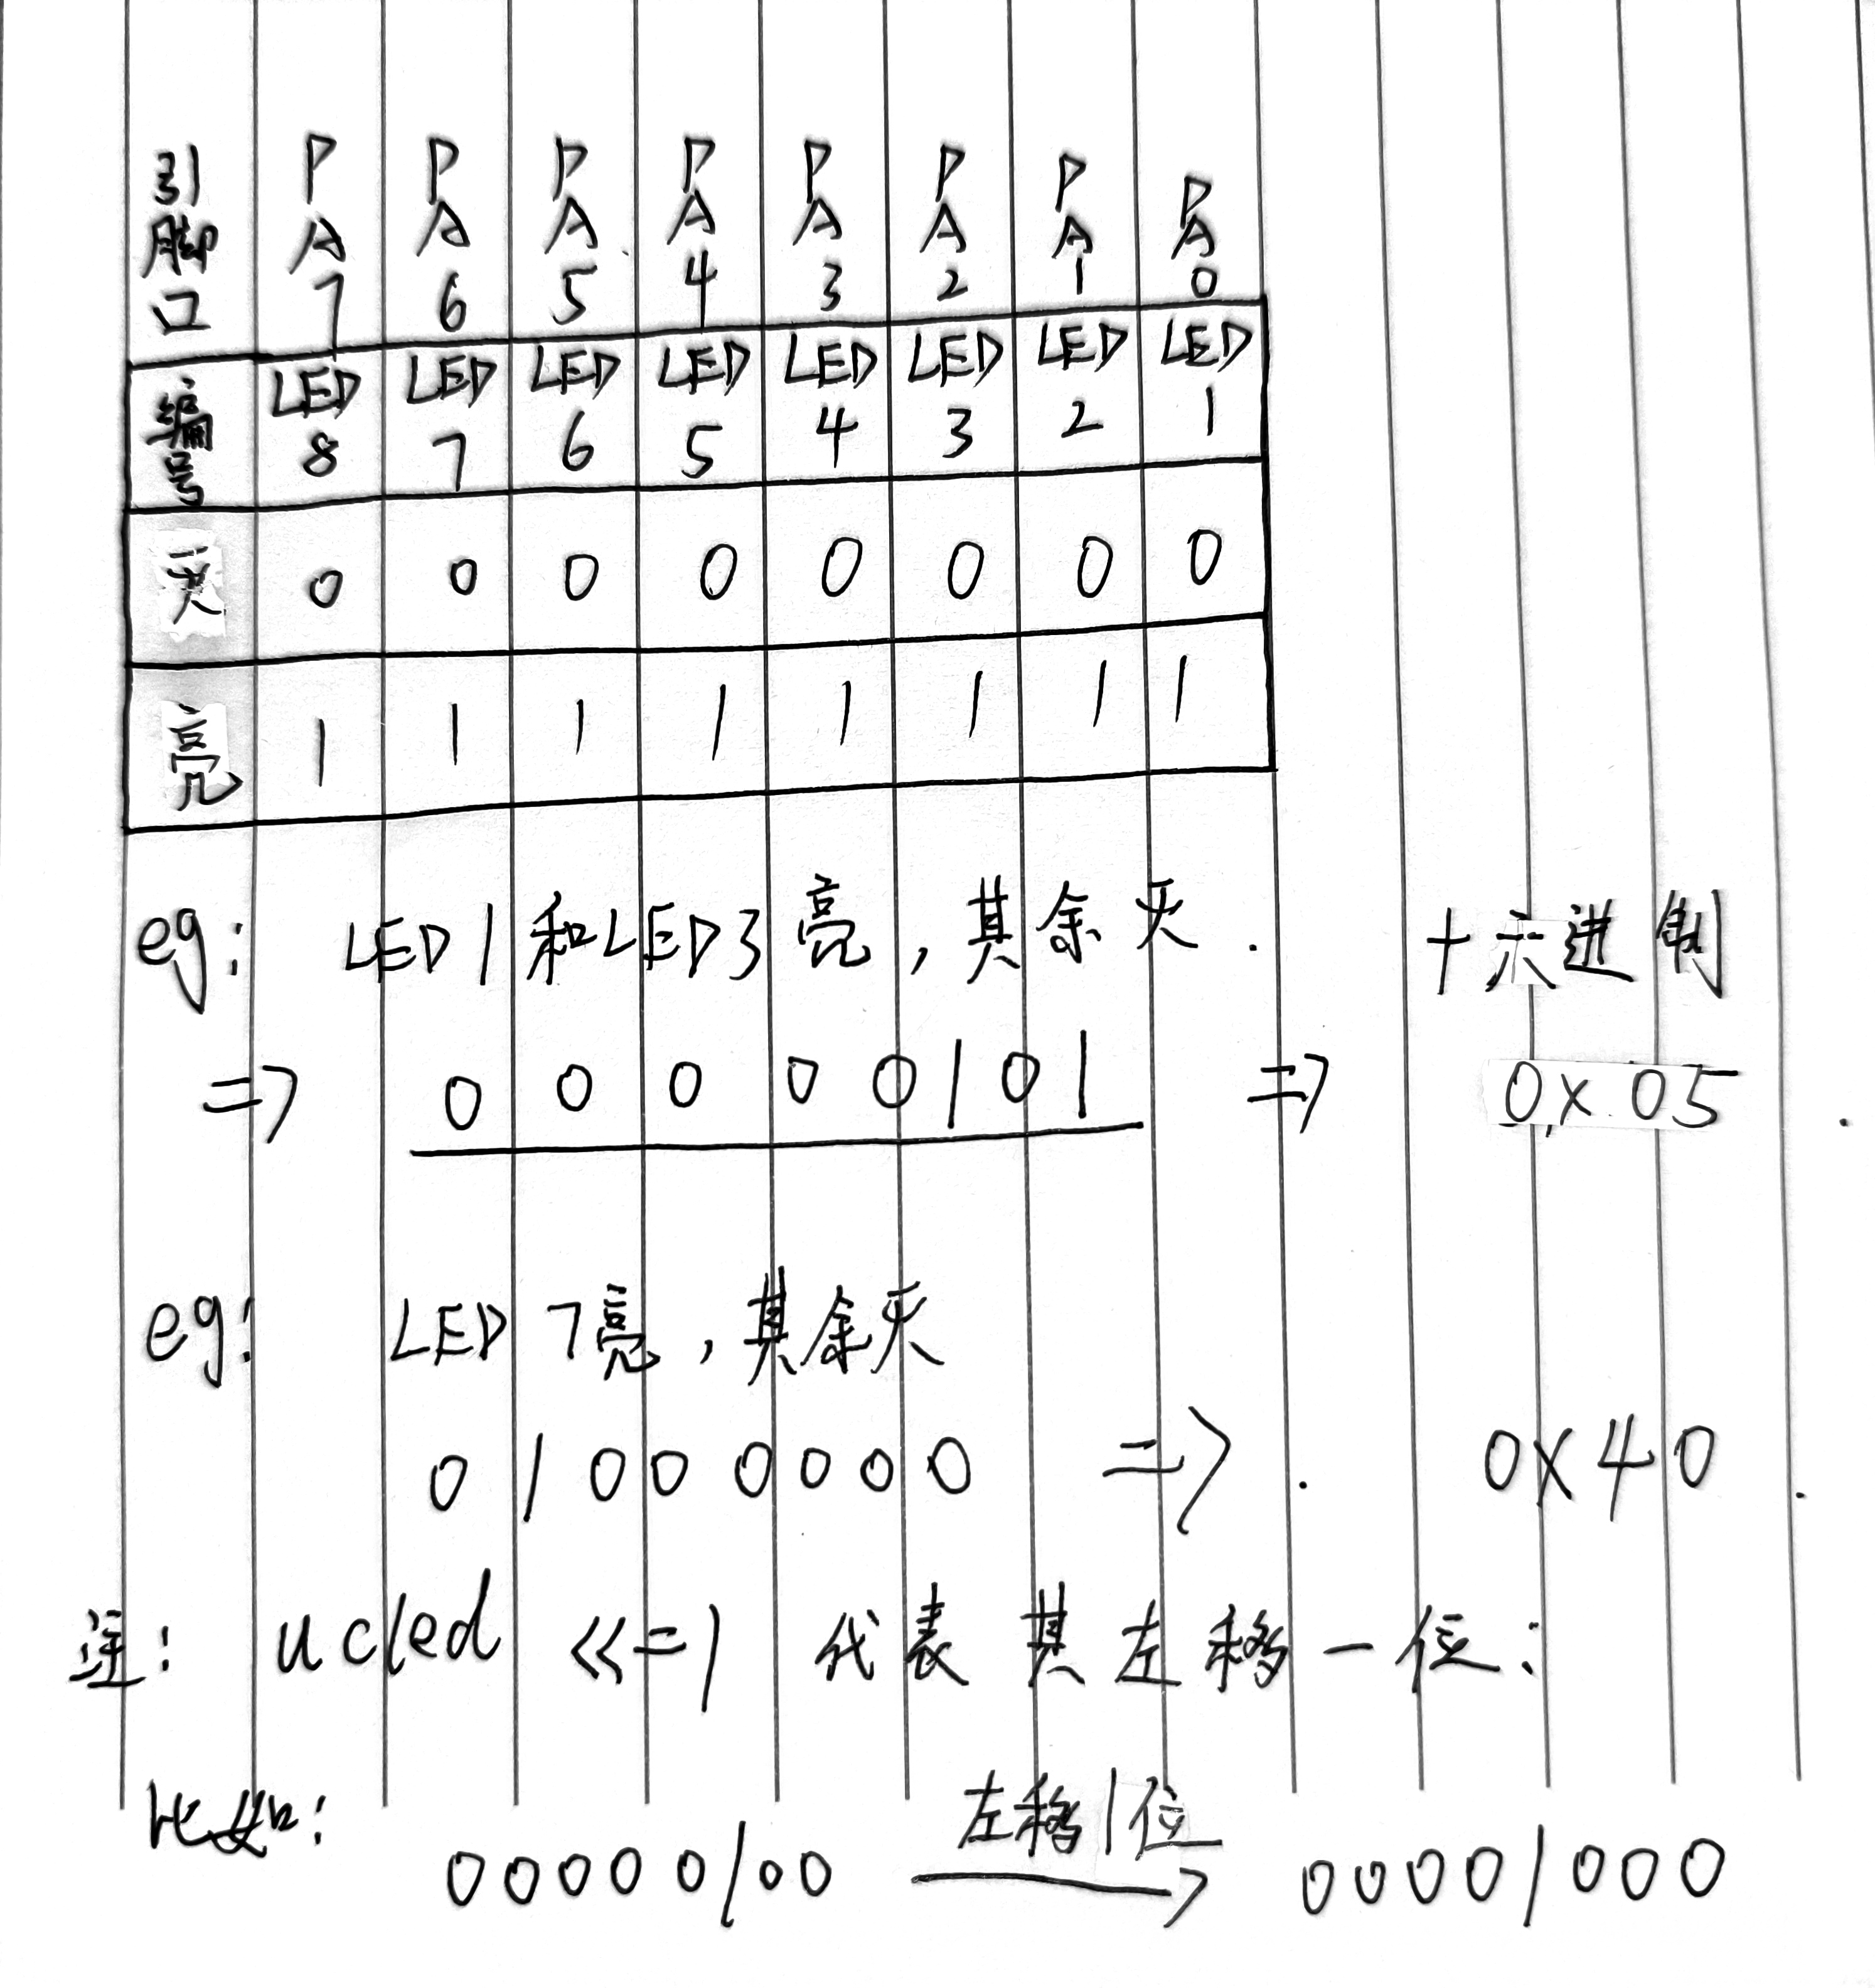 引脚口 PA7 PA6 PA5 PA4 PA3 PA2 PA1 PA0
编号 LED8 LED7 LED6 LED5 LED4 LED3 LED2 LED1
灭 0 0 0 0 0 0 0 0
亮 1 1 1 1 1 1 1 1
eg: LED1和LED3亮,其余灭. 十六进制
=> 00000101 => 0x05.
eg: LED7亮,其余灭
01000000 =>. 0X40.
注: ucled <<=1 代表其左移一位:
比如: 00000100 左移1位 → 00001000